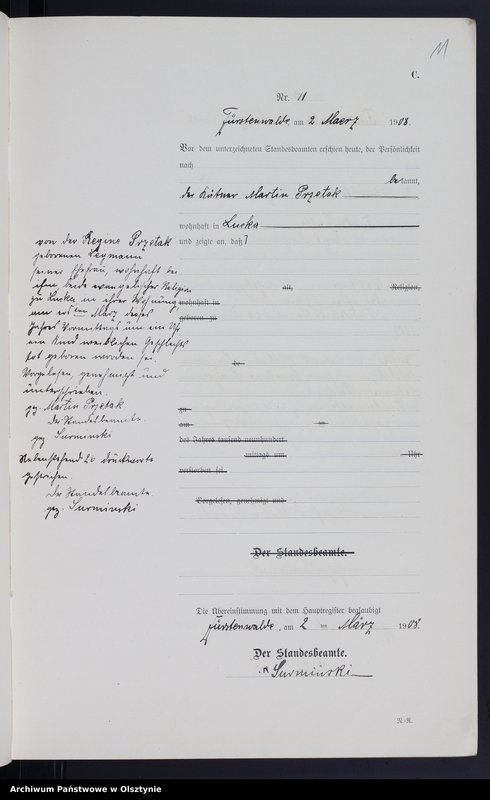 11
C.
Nr. 11
Fürstenwalde, am 2 Maerz 1908.
Vor dem unterzeichneten Standesbeamten erschien heute, der Persönlichkeit
nach
bekannt,
der Kätner Martin Przetak
wohnhaft in Lucka
und zeigte an, daß
von der Regine Przetak
geborenen Leymann
seiner Ehefrau, wohnhaft bei
ihm beide evangelischer Religion
zu Lucka in ihrer Wohnung
am ersten März dieses
Jahres Vormittags um ein Uhr
ein Kind weiblichen Geschlechts
tot geboren worden sei.
Vorgelesen, genehmigt und
unterschrieben.
gez. Martin Przetak
Der Standesbeamte
gez. Surminski
Nebenstehend 26 Druckworte
gestrichen.
Der Standesbeamte
gez. Surminski
alt, Religion,
wohnhaft in
geboren zu
zu
am
des Jahres tausend neunhundert
mittags um Uhr
verstorben sei.
Vorgelesen, genehmigt und
Der Standesbeamte.
Die Übereinstimmung mit dem Hauptregister beglaubigt
Fürstenwalde, am 2 ten März 1908.
Der Standesbeamte.
Surminski
Archiwum Państwowe w Olsztynie